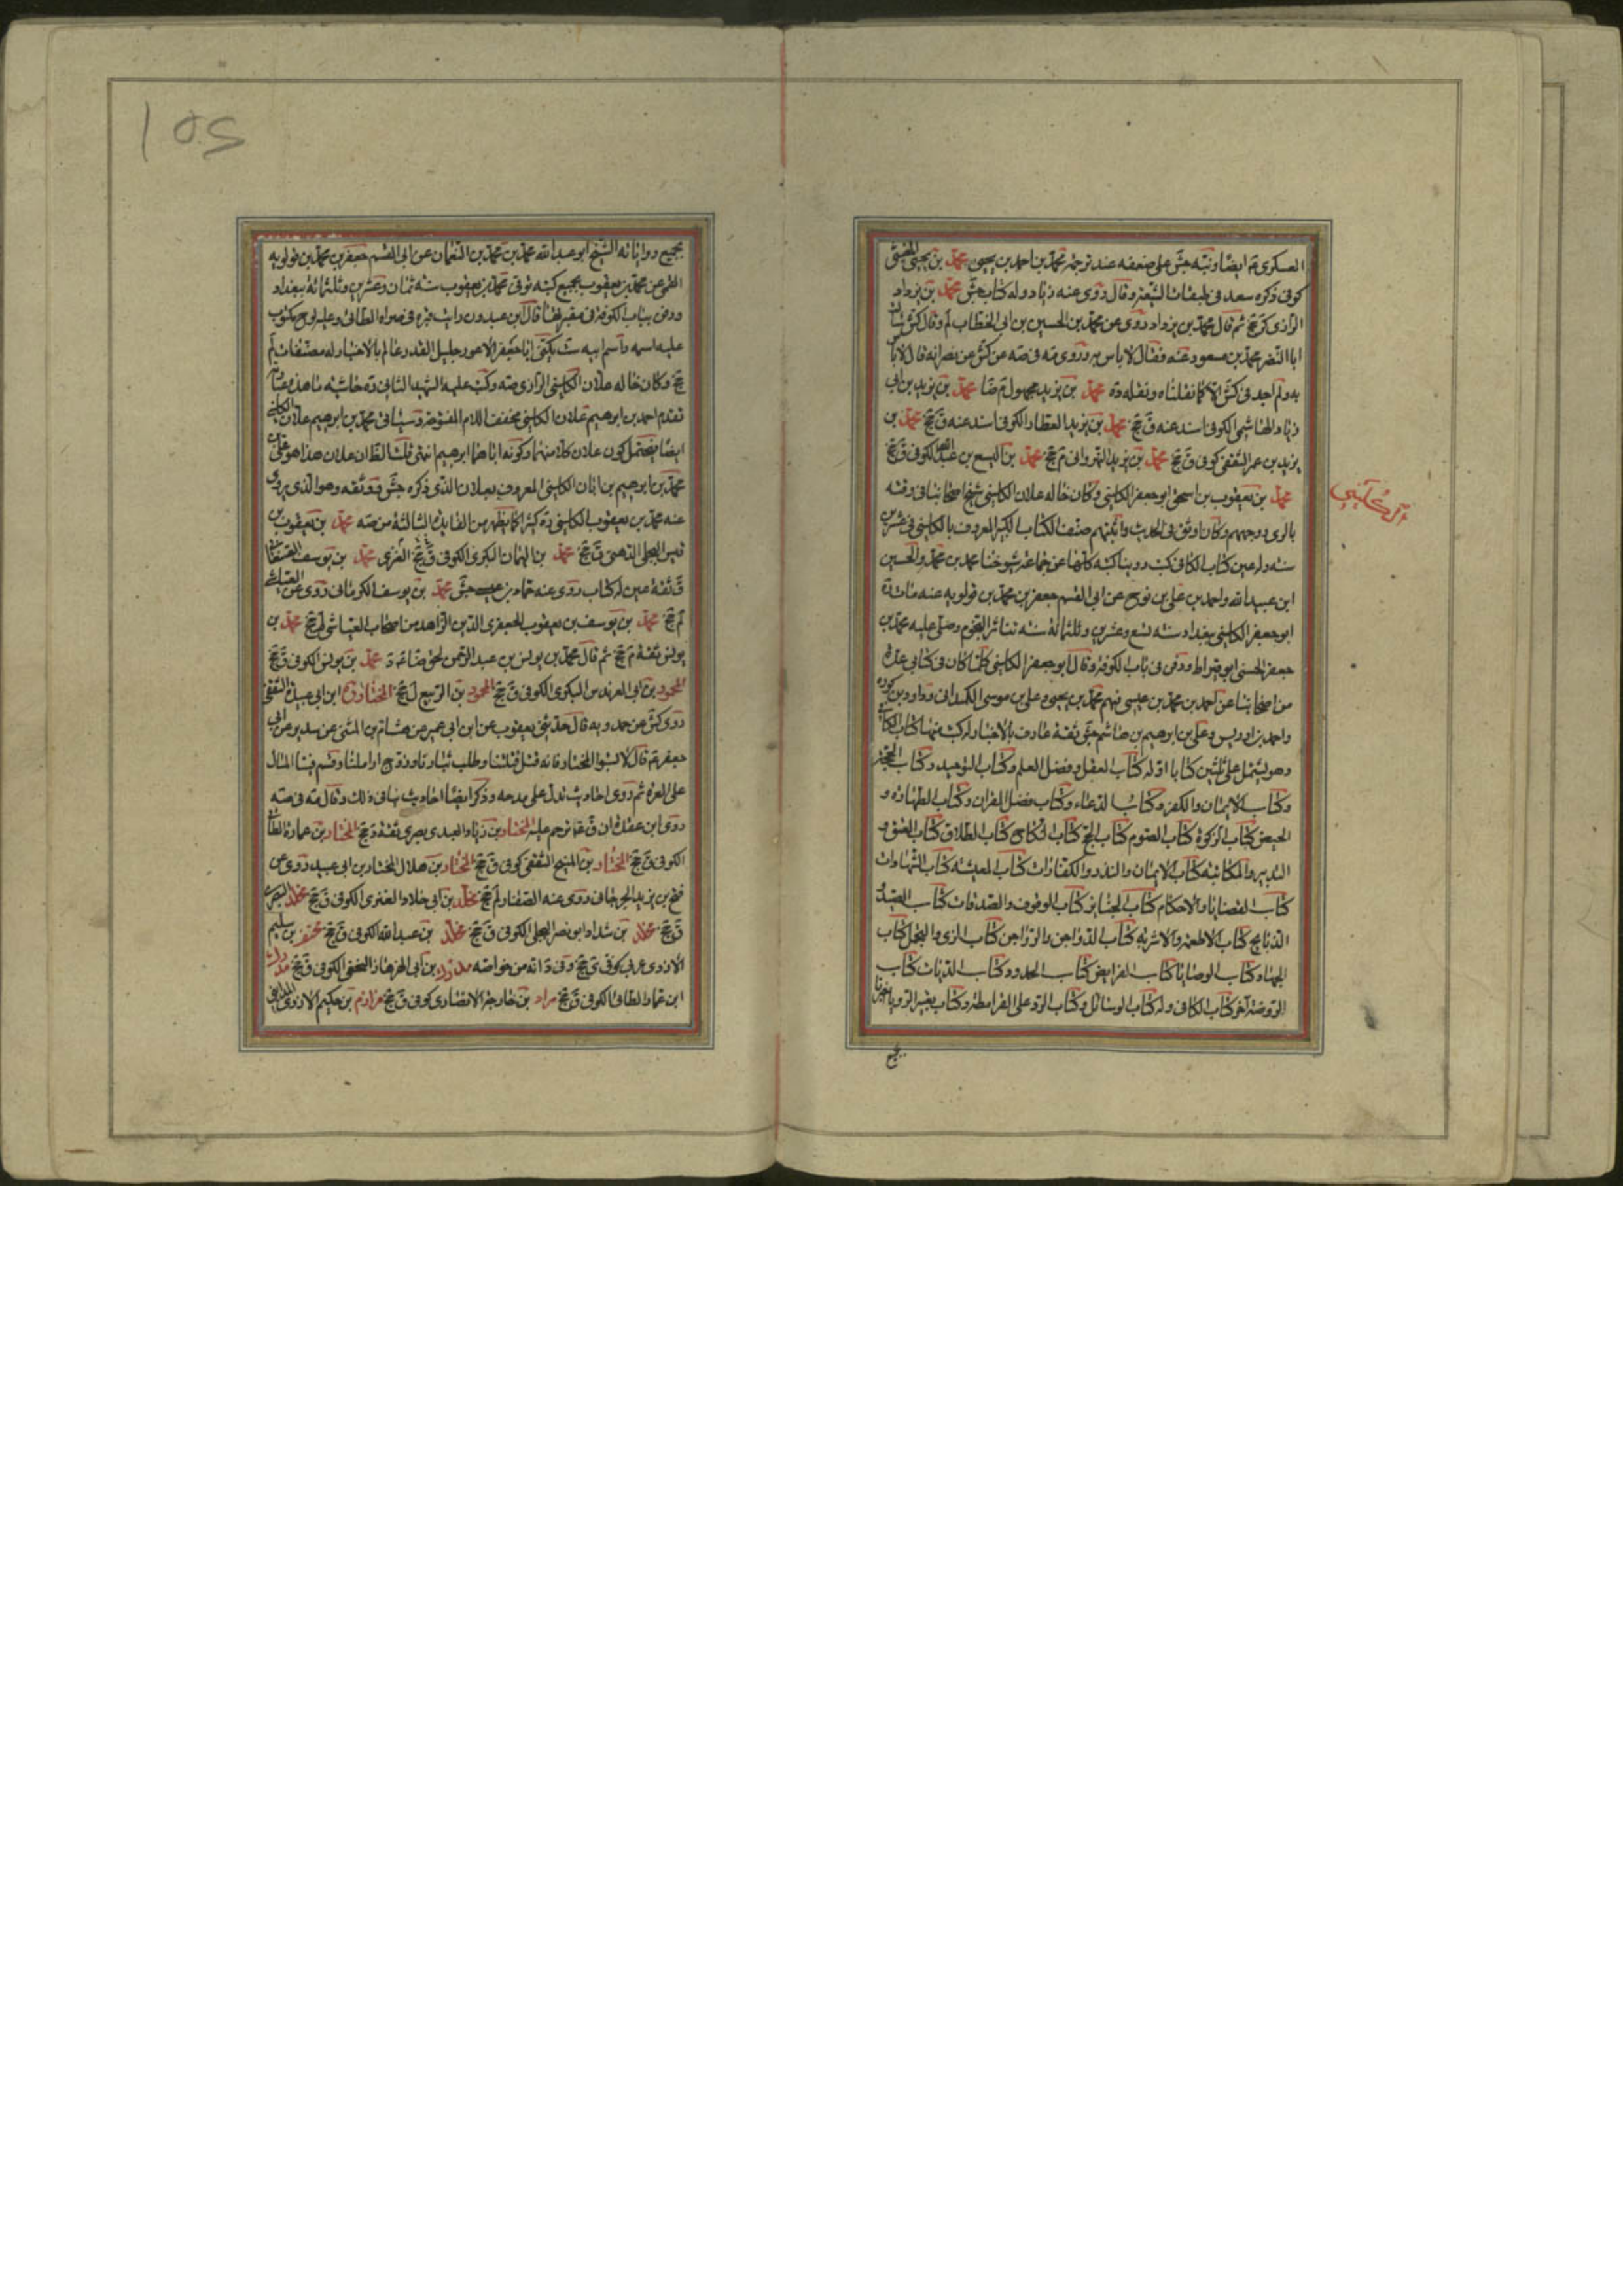 العسكرى ع ايضا ونبه جش على ضعفه عند ترجمة محمد بن احمد بن يحيى محمد بن يحيى الخثعمى
كوفى ذكره سعد فى طبقات الشيعة وقال روى عنه زياد وله كتاب جش محمد بن يزداد
الرازى كر جخ ثم قال محمد بن يزداد روى عن محمد بن الحسين بن ابى الخطاب لم وقال كش
ابا النضر محمد بن مسعود عنه فقال لا باس به وروى مه فى صه عن كش عن نضر انه قال لا باس
به ولم اجد فى كش الا كما نقلناه ونقله ده محمد بن يزيد مجهول م ضا محمد بن يزيد بن ابى
زياد الهاشمى الكوفى اسند عنه ق جخ محمد بن يزيد العطار الكوفى اسند عنه ق جخ محمد بن
يزيد بن عمر الثقفى كوفى ق جخ محمد بن يزيد النهروانى م جخ محمد بن اليسع بن عبد الله الكوفى ق جخ
محمد بن يعقوب بن اسحق ابو جعفر الكلينى وكان خاله علان الكلينى شيخ اصحابنا فى وقته
الكلينى
بالرى ووجههم وكان اوثق فى الحديث واثبتهم صنف الكتاب الكبير المعروف بالكلينى فى عشرين
سنة وله عين كتاب الكافى كتب روينا كتبه كلها عن جماعة شيوخنا محمد بن محمد والحسين
ابن عبيد الله واحمد بن على بن نوح عن ابى القسم جعفر بن محمد بن قولويه عنه مات
ابو جعفر الكلينى ببغداد سنة تسع وعشرين وثلثمائة سنة تناثر النجوم وصلى عليه محمد بن
جعفر الحسنى ابو قيراط ودفن فى باب الكوفة وقال ابو جعفر الكلينى كلما كان فى كتابى عدة
من اصحابنا عن احمد بن محمد بن عيسى فهم محمد بن يحيى وعلى بن موسى الكميدانى وداود بن كورة
واحمد بن ادريس وعلى بن ابرهيم بن هاشم جش ثقة عارف بالاخبار له كتب منها كتاب الكافى
وهو يشتمل على ثلثين كتابا اوله كتاب العقل وفضل العلم وكتاب التوحيد وكتاب الحجة
وكتاب الايمان والكفر وكتاب الدعاء وكتاب فضل القران وكتاب الطهارة و
الحيض كتاب الزكوة كتاب الصوم كتاب الحج كتاب النكاح كتاب الطلاق كتاب العتق و
التدبير والمكاتبة كتاب الايمان والنذر والكفارات كتاب المعيشة كتاب الشهادات
كتاب القضايا والاحكام كتاب الجنايز كتاب الوقوف والصدقات كتاب الصيد
الذبايح كتاب الاطعمة والاشربة كتاب الدواجن والرواجن كتاب الزى والتجمل كتاب
الجهاد كتاب الوصايا كتاب الفرايض كتاب الحدود كتاب الديات كتاب
الروضة اخر كتاب الكافى وله كتاب الرسائل وكتاب الرد على القرامطة وكتاب تعبير الرويا اخبرنا
بجميع
105
بجميع رواياته الشيخ ابو عبد الله محمد بن محمد بن النعمان عن ابى القسم جعفر بن محمد بن قولويه
القمى عن محمد بن يعقوب بجميع كتبه توفى محمد بن يعقوب سنة ثمان وعشرين وثلثمائة ببغداد
ودفن بباب الكوفة فى مقبرتها قال ابن عبدون رايت قبره فى صراة الطائى وعليه لوح مكتوب
عليه اسمه واسم ابيه ست يكنى ابا جعفر الاعور جليل القدر عالم بالاخبار وله مصنفات لم
جخ وكان خاله علان الكلينى الرازى صه وكتب عليه الشهيد الثانى ره حاشية
تقدم احمد بن ابرهيم علان الكلينى مخفف اللام المفتوحة وسياتى محمد بن ابرهيم علان الكلينى
ايضا فيحتمل كون علان كلا منهما وكونه اباهما ابرهيم انتهى قلت الظاهر ان علان هذا هو على بن
محمد بن ابرهيم بن ابان الكلينى المعروف بعلان الذى ذكره جش ووثقه وهو الذى يروى
عنه محمد بن يعقوب الكلينى ره كثيرا كما يظهر من الفايدة الثالثة من صه محمد بن يعقوب بن
قيس البجلى الدهنى ق جخ محمد بن اليمان البكرى الكوفى ق جخ محمد بن يوسف الصنعانى
ق ثقة عين له كتاب روى عنه حماد بن عيسى جش محمد بن يوسف الكرمانى روى عن العياشى
لم جخ محمد بن يوسف بن يعقوب الجعفرى الدين الزاهد من اصحاب العياشى لم جخ محمد بن
يونس ثقة م جخ ثم قال محمد بن يونس بن عبد الرحمن لحق ضا ع د محمد بن يونس الكوفى ق جخ
المحمود بن ابى العرندس البكرى الكوفى ق جخ المحمود بن الربيع ل جخ المختار ابن ابى عبيدة الثقفى
روى كش عن حمدويه قال حدثنى يعقوب عن ابن ابى عمير عن هشام بن المثنى عن سدير عن ابى
جعفر ع قال لا تسبوا المختار فانه قتل قتلتنا وطلب بثارنا وزوج اراملنا وقسم فينا المال
على العسرة ثم روى احاديث تدل على مدحه وذكر ايضا احاديث تنافى ذلك وقال مه فى صه
روى ابن عقدة ان ق ع ترحم عليه المختار بن زياد العبدى بصرى ثقة د جخ المختار بن عمارة الطائى
الكوفى ق جخ المختار بن المنيح الثقفى كوفى ق جخ المختار بن هلال المختار بن ابى عبيد روى عن
فتح بن يزيد الجرجانى روى عنه الصفار لم جخ مخلد بن ابى خلاد العنزى الكوفى ق جخ مخلد البصرى
ق جخ مخلد بن شداد ابو نصر البجلى الكوفى ق جخ مخلد بن عبد الله الكوفى ق جخ مخنف بن سليم
الازدى عربى كوفى ى جخ وفى د انه من خواصه مدرك بن ابى الهزهاز النخعى الكوفى ق جخ مدرك
ابن عمار الطائى الكوفى ق جخ مراد بن خارجة الانصارى كوفى ق جخ مرازم بن حكيم الازدى المداينى